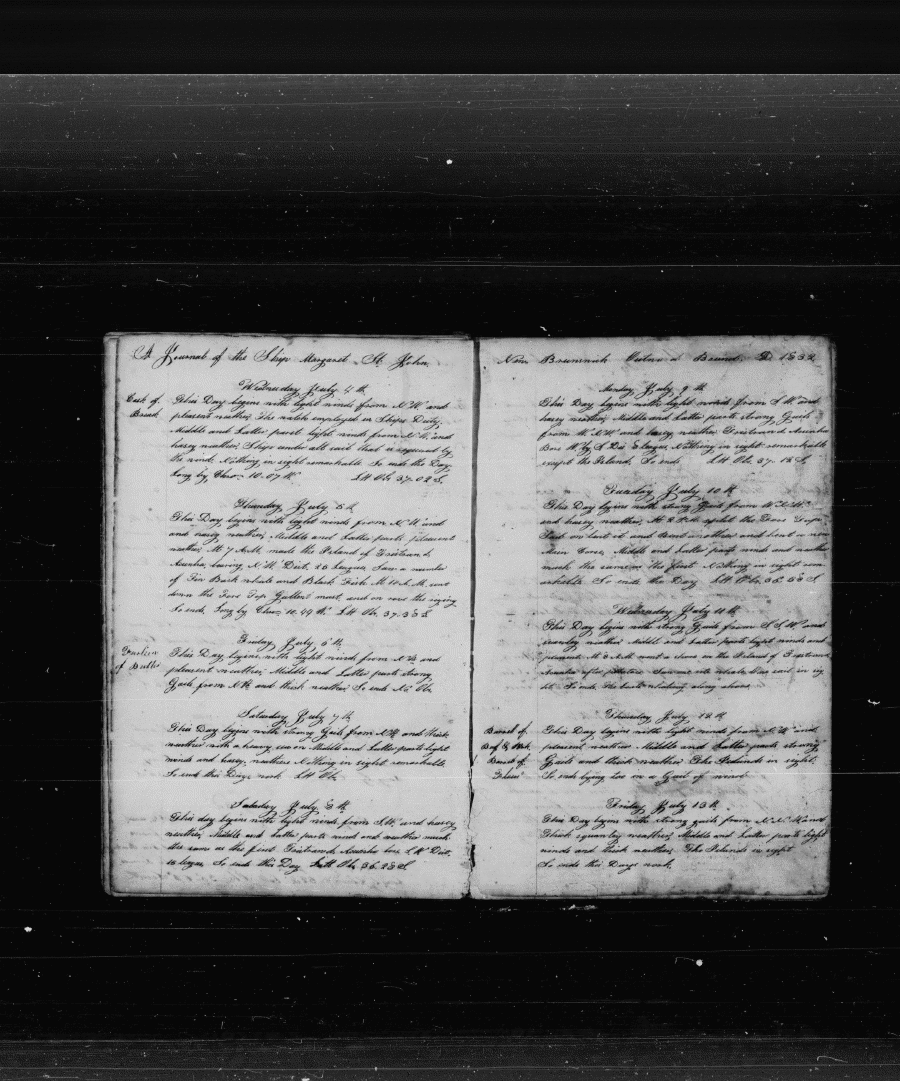 A Journal of the Ship Margaret St. John
Wednesday July 4th
Cask of
Bread
This Day begins with light winds from N.W. and
pleasent weather, The watch employed in Ships Duty,
Middle and Latter part light winds from N.W. and
hasey weather, Ships under all sail that is required by
the wind. Nothing in sight remarkable. So ends the Day
Long by Chro. 10.07 W. Latt Ob. 37.02 S.
Thursday July 5th
This Day begins with light winds from N.W. and
and hasey weather, Middle and Latter parts pleasent
weather. At 7 A.M. made the Island of Tristand
Acunha, bearing N.W. Dist. 20 Leagues. Saw a number
of Fin Back whale and Black Fish. At 10 A.M. sent
down the Fore Top Gallent mast and
So ends, Long by Chro. 10.49 W. Latt Ob. 37.33 S
Friday July 6th
of Butter
This Day begins with light winds from N.W. and
pleasent weather, Middle and Latter parts strong
Gails from N.W. and thick weather So ends No Ob.
Saturday July 7th
This Day begins with strong Gails from N.W. and thick
weather with a heavy sea on Middle and Latter parts light
winds and hasey weather Nothing in sight remarkable
So ends this Days work. Latt Ob.
Saturday July 8th
This day begins with light winds from and hasey
weather, Middle and Latter parts wind and weather much
the same as the first Tristand Acunha bore S.W. Dist.
So ends this Day Latt Ob. 36.28 S.
New Brunswick Bound. 1832
Monday July 9th
This Day begins with light winds from S.W. and
hasey weather, Middle and Latter parts strong Gails
from W.N.W. and hasey weather Tristand Acunha
Bore Nothing in sight remarkable
except the Island. So ends Latt Ob. 37.15 S.
Tuesday July 10th
This Day begins with strong Gails from W.N.W.
and hasey weather, At 2 P.M. the Fore Top
Sail and sent another and bent a new
Middle and Latter parts winds and weather
much the same as the first Nothing in sight rem-
arkable So ends the Day Latt Ob. 36.58 S
Wednesday July 11th
This Day begins with strong Gails from S.S.W. and
weather Middle and Latter parts light winds and
pleasent. At 8 A.M. went a shore on the Island of Tristand
Acunha after potatoes. Saw one whale. sail in sig
ht. So ends. The boat whaling along shore
Thursday July 12th
Barrel of
Beef & Pork
Barrel of
Flour
This Day begins with light winds from N.W. and
pleasent weather Middle and Latter parts strong
Gails and thick weather The Islands in sight.
So ends lying too in a Gail of wind.
Friday July 13th
This Day begins with strong gails from N.N.W. and
thick squarly weather, Middle and Latter parts light
winds and thick weather, The Islands in sight
So ends this Days work.